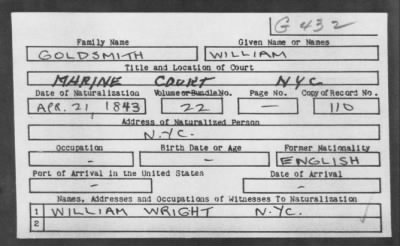 G 432
Family Name Given Name or Names
GOLDSMITH WILLIAM
Title and Location of Court
MARINE COURT N.Y.C.
Date of Naturalization Volume or Bundle No. Page No. Copy of Record No.
APR. 21, 1843 22 — 110
Address of Naturalized Person
N.Y.C.
Occupation Birth Date or Age Former Nationality
- - ENGLISH
Port of Arrival in the United States Date of Arrival
- -
Names, Addresses and Occupations of Witnesses To Naturalization
1 WILLIAM WRIGHT N.Y.C.
2